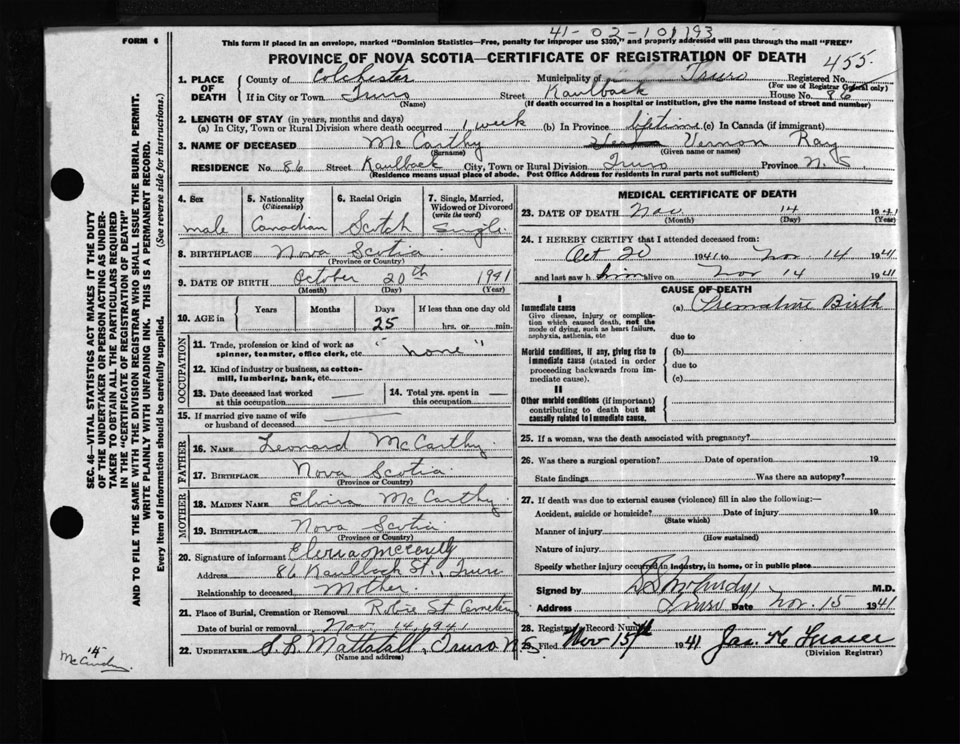 41-02-101193
FORM 6
This form if placed in an envelope, marked "Dominion Statistics—Free, penalty for improper use $300," and properly addressed will pass through the mail "FREE"
PROVINCE OF NOVA SCOTIA—CERTIFICATE OF REGISTRATION OF DEATH 455
1. PLACE OF DEATH County of Colchester Municipality of Truro Registered No.
(For use of Registrar General only)
If in City or Town Truro Street Kaulback House No. 86
(Name) (If death occurred in a hospital or institution, give the name instead of street and number)
2. LENGTH OF STAY (in years, months and days)
(a) In City, Town or Rural Division where death occurred 1 week (b) In Province lifetime (c) In Canada (if immigrant)
3. NAME OF DECEASED McCarthy Vernon Ray
(Surname) (Given name or names)
RESIDENCE No. 86 Street Kaulback City, Town or Rural Division Truro Province N.S.
(Residence means usual place of abode. Post Office Address for residents in rural parts not sufficient)
4. Sex 5. Nationality (Citizenship) 6. Racial Origin 7. Single, Married, Widowed or Divorced (write the word)
male Canadian Scotch Single
8. BIRTHPLACE Nova Scotia
(Province or Country)
9. DATE OF BIRTH October 20th 1941
(Month) (Day) (Year)
10. AGE in Years Months Days If less than one day old
25 hrs. or min.
OCCUPATION
11. Trade, profession or kind of work as spinner, teamster, office clerk, etc. "none"
12. Kind of industry or business, as cotton-mill, lumbering, bank, etc.
13. Date deceased last worked at this occupation — 14. Total yrs. spent in this occupation —
15. If married give name of wife or husband of deceased —
FATHER
16. NAME Leonard McCarthy
17. BIRTHPLACE Nova Scotia
(Province or Country)
MOTHER
18. MAIDEN NAME Elvira McCarthy
19. BIRTHPLACE Nova Scotia
(Province or Country)
20. Signature of informant
Address 86 Kaulback St., Truro
Relationship to deceased Mother
21. Place of Burial, Cremation or Removal Robie St Cemetery
Date of burial or removal Nov 14, 1941
22. UNDERTAKER Mattatall, Truro N.S.
(Name and address)
MEDICAL CERTIFICATE OF DEATH
23. DATE OF DEATH Nov. 14 1941
(Month) (Day) (Year)
24. I HEREBY CERTIFY that I attended deceased from:
Oct 20 1941 to Nov. 14 1941
and last saw him alive on Nov 14 1941
CAUSE OF DEATH
I
Immediate cause (a) Premature Birth
Give disease, injury or complication which caused death, not the mode of dying, such as heart failure, asphyxia, asthenia, etc due to
Morbid conditions, if any, giving rise to immediate cause (stated in order proceeding backwards from immediate cause). (b) due to (c)
II
Other morbid conditions (if important) contributing to death but not causally related to immediate cause.
25. If a woman, was the death associated with pregnancy?
26. Was there a surgical operation? Date of operation 19
State findings Was there an autopsy?
27. If death was due to external causes (violence) fill in also the following:—
Accident, suicide or homicide? Date of injury 19
(State which)
Manner of injury
(How sustained)
Nature of injury
Specify whether injury occurred in industry, in home, or in public place
Signed by M.D.
Address Truro Date Nov. 15 1941
28. Registrar's Record Number
29. Filed Nov 15th 1941 Jas. K Fraser
(Division Registrar)
SEC. 46—VITAL STATISTICS ACT MAKES IT THE DUTY
OF THE UNDERTAKER OR PERSON ACTING AS UNDER-
TAKER TO OBTAIN ALL THE PARTICULARS REQUIRED
IN THE "CERTIFICATE OF REGISTRATION OF DEATH"
AND TO FILE THE SAME WITH THE DIVISION REGISTRAR WHO SHALL ISSUE THE BURIAL PERMIT.
WRITE PLAINLY WITH UNFADING INK. THIS IS A PERMANENT RECORD.
Every item of information should be carefully supplied. (See reverse side for instructions.)